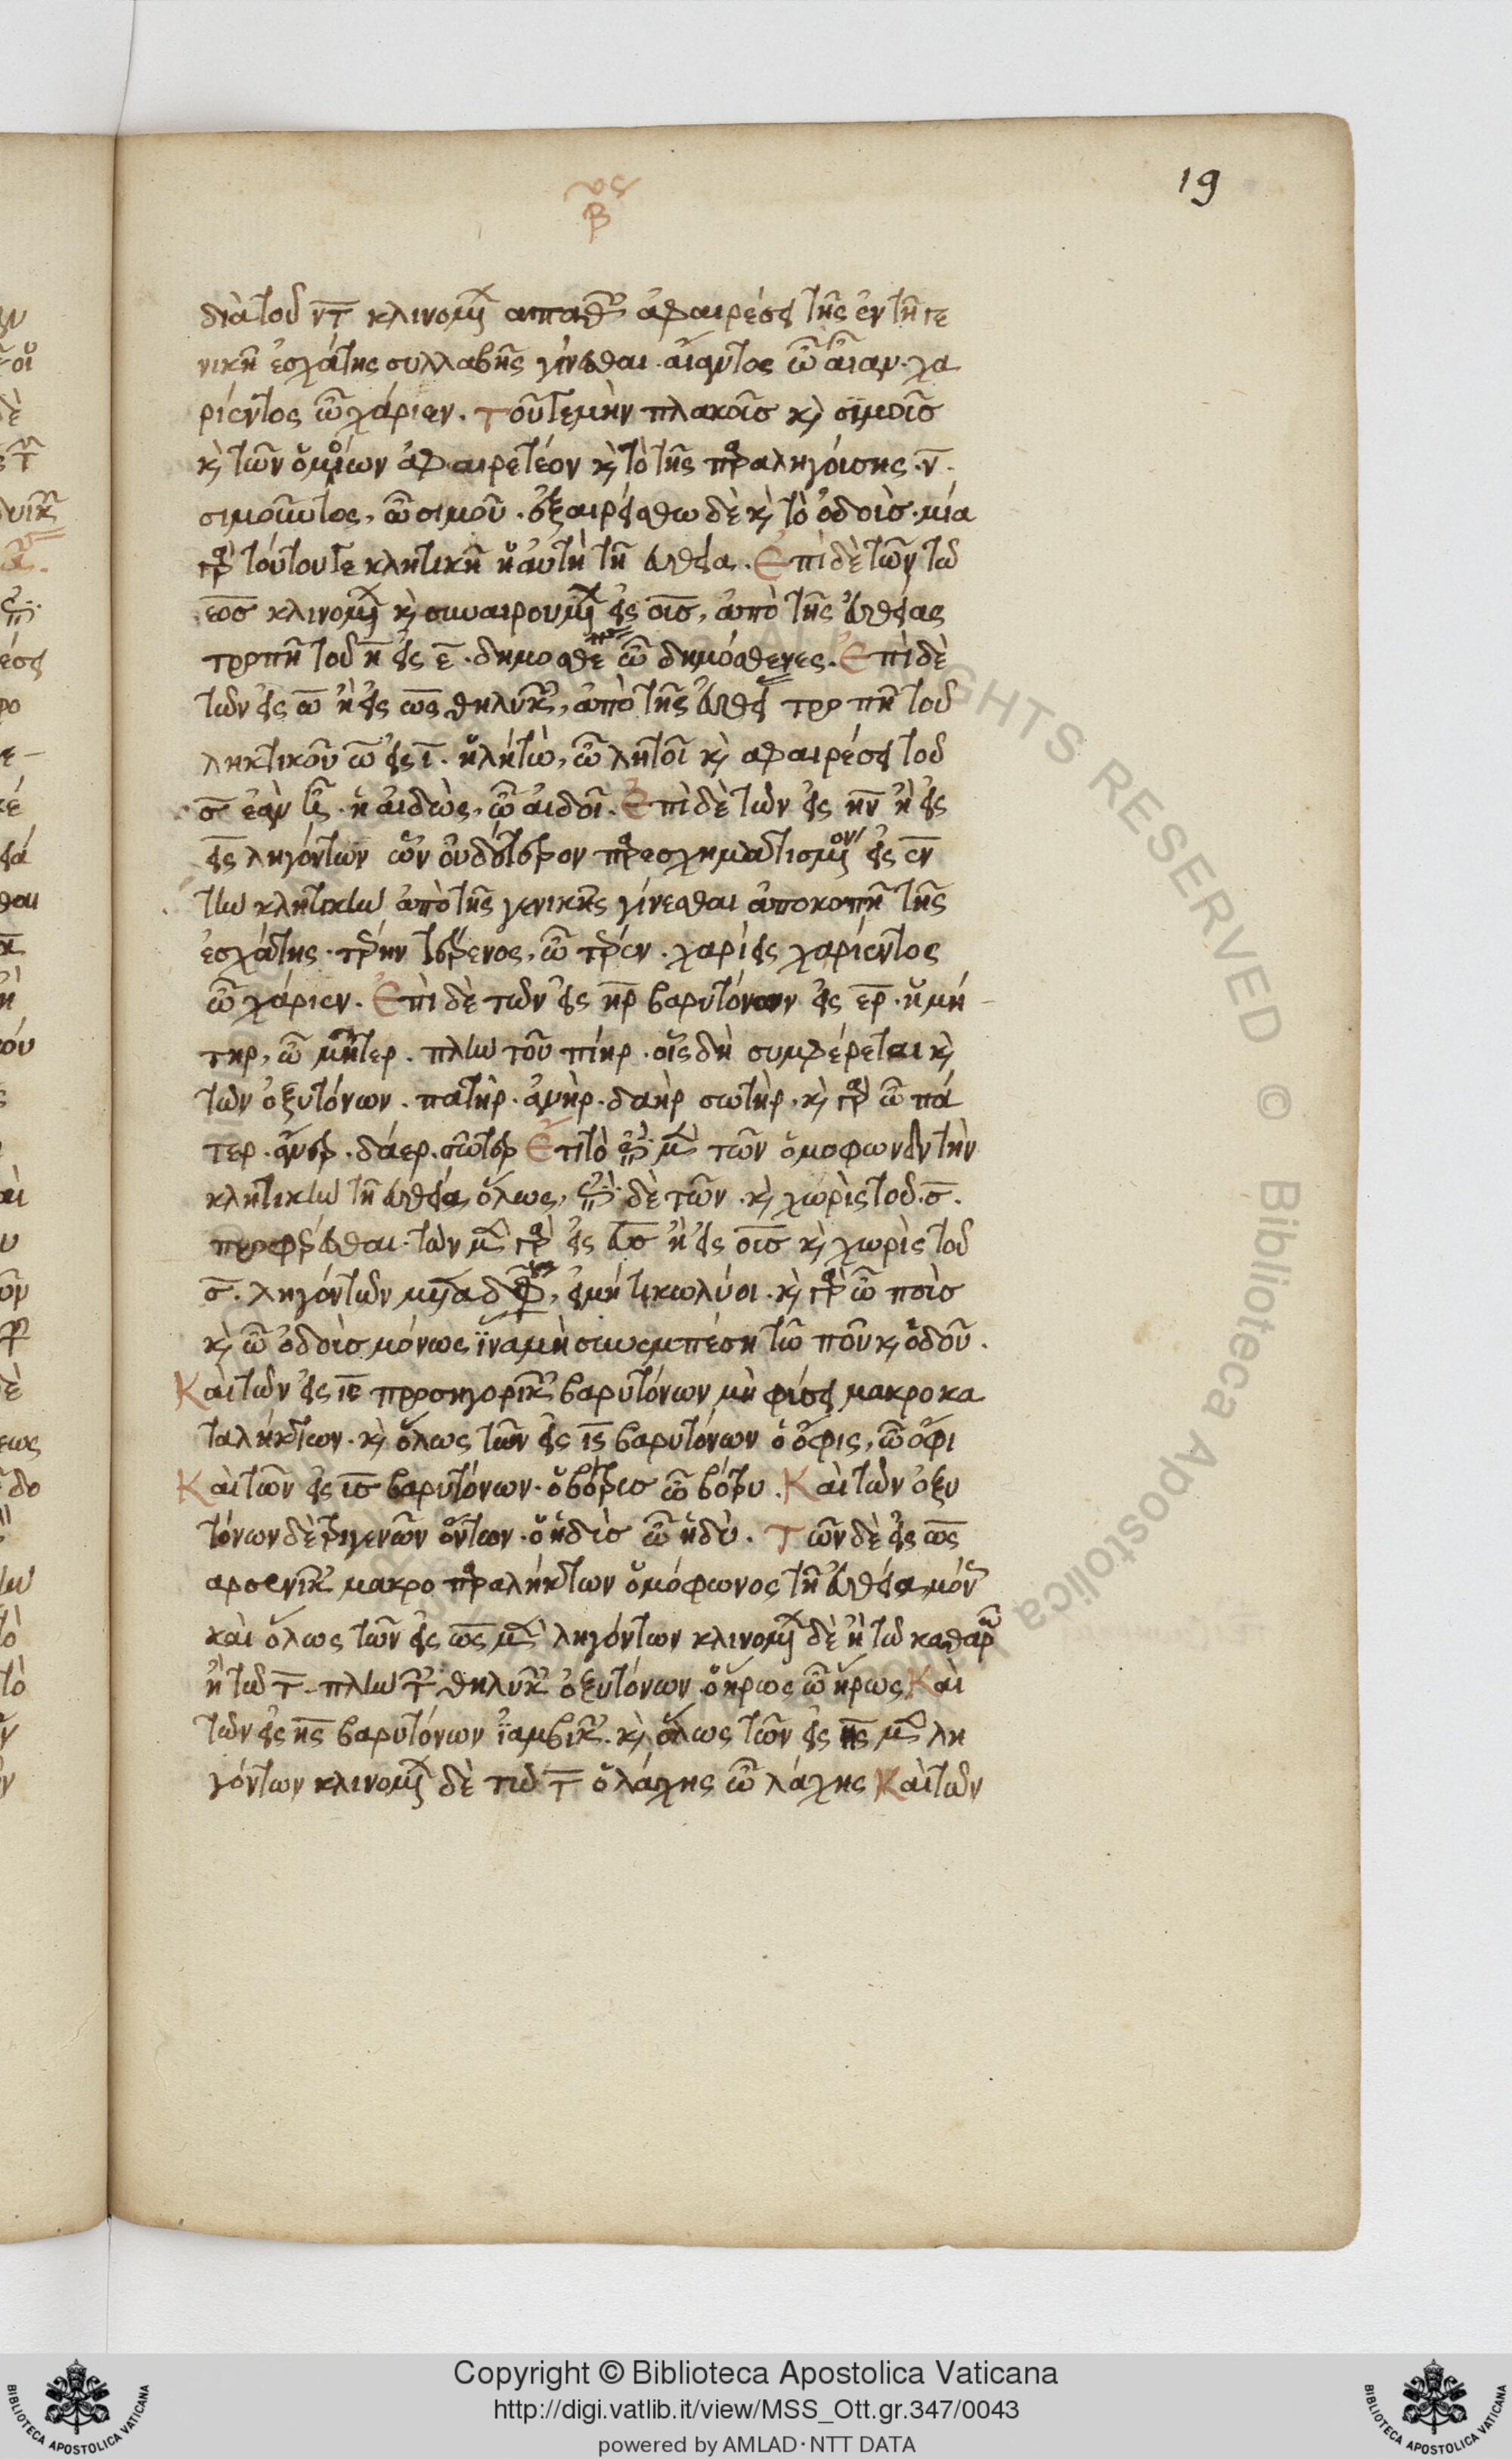 19
β
διὰ τοῦ ντ κλινομ ἁπαθ ἀφαιρέσει τῆς ἐν τῇ γε
νικῇ ἐσχάτης συλλαβῆς γίνεσθαι. αἴαντος ὦ αἶαν. χα
ρίεντος ὦ χάριεν. τοῦ γε μὴν πλακοῦς κὶ σϊμοῦς
κὶ τῶν ὁμοίων ἀφαιρετέον κὶ τὸ τῆς παραληγούσης. ν.
σιμοῦντος, ὦ σιμοῦ. ἐξαιρείσθω δὲ κὶ τὸ ὀδούς. μία
γὰρ τούτου τε κλητικὴ ἡ αὐτὴ τῇ εὐθεία. Ἐπὶ δὲ τῶν τῶ
εος κλινομ κὶ συναιρουμ εἰς ους, ἀπὸ τῆς εὐθείας
τροπῇ τοῦ η εἰς ε. δημοσθένης ὦ δημόσθενες. Ἐπὶ δὲ
τῶν εἰς ω ἢ εἰς ως θηλυκ, ἀπὸ τῆς εὐθεί τροπῇ τοῦ
ληκτικοῦ ω εἰς ι. ἡ λητώ, ὦ λητοῖ κὶ αφαιρέσει τοῦ
σ ἐὰν . ἡ αἰδώς, ὦ αἰδοῖ. Ἐπὶ δὲ τῶν εἰς ην ἢ εἰς
εις ληγόντων ὧν οὐδέτερον παρεσχηματισμένον εἰς εν
τὴν κλητικὴν ἀπὸ τῆς γενικῆς γίνεσθαι ἀποκοπῇ τῆς
ἐσχάτης. τέρην τέρενος, ὦ τέρεν. χαρίεις χαρίεντος
ὦ χάριεν. Ἐπὶ δὲ τῶν εἰς ηρ βαρυτόνων εἰς ερ. ἡ μή
τηρ, ὦ μῆτερ. πλὴν τοῦ πίηρ. οἷς δὴ συμφέρεται κὶ
τῶν ὀξυτόνων. πατήρ. ἀνήρ. δαήρ σωτήρ. κὶ γὰρ ὦ πά
τερ. ἄνερ. δάερ. σῶτερ Ἐτι τὸ μ τῶν ὁμοφων τὴν
κλητικὴν τῇ εὐθεία ὅλως, δὲ τῶν. κὶ χωρὶς τοῦ. σ.
προφέρεσθαι. τῶν μ γὰρ εἰς ευς ἢ εἰς ους κὶ χωρὶς τοῦ
σ. ληγόντων , εἰ μή τι κωλύοι. κὶ γὰρ ὦ πούς
κὶ ὦ ὀδούς μόνως ἵνα μὴ συνεμπέση τῶ ποῦ κὶ ὁδοῦ.
Καὶ τῶν εἰς ις προσηγορικ βαρυτόνων μὴ φύσει μακροκα
ταλήκτων. κὶ ὅλως τῶν εἰς ις βαρυτόνων ὁ ὄφις, ὦ ὄφι
Καὶ τῶν εἰς υς βαρυτόνων. ὁ βότρυς ὦ βότρυ. Καὶ τῶν ὀξυ
τόνων δὲ τριγενῶν ὄντων. ὁ ἡδύς ὦ ἡδύ. Τῶν δὲ εἰς ως
αρσενικ μακροπαραλήκτων ὁμόφωνος τῇ εὐθεία μόν
καὶ ὅλως τῶν εἰς ως μ ληγόντων κλινομ δὲ ἢ τῶ καθαρῶ
ἢ τῶ τ. πλὴν τ θηλυκ ὀξυτόνων ὁ ἥρως ὦ ἥρως Καὶ
τῶν εἰς ης βαρυτόνων ἰαμβικ. κὶ ὅλως τῶν εἰς ης μ λη
γόντων κλινομ δὲ τῶ τ ὁ λάχης ὦ λάχης Καὶ τῶν
Copyright © Biblioteca Apostolica Vaticana
http://digi.vatlib.it/view/MSS_Ott.gr.347/0043
powered by AMLAD · NTT DATA